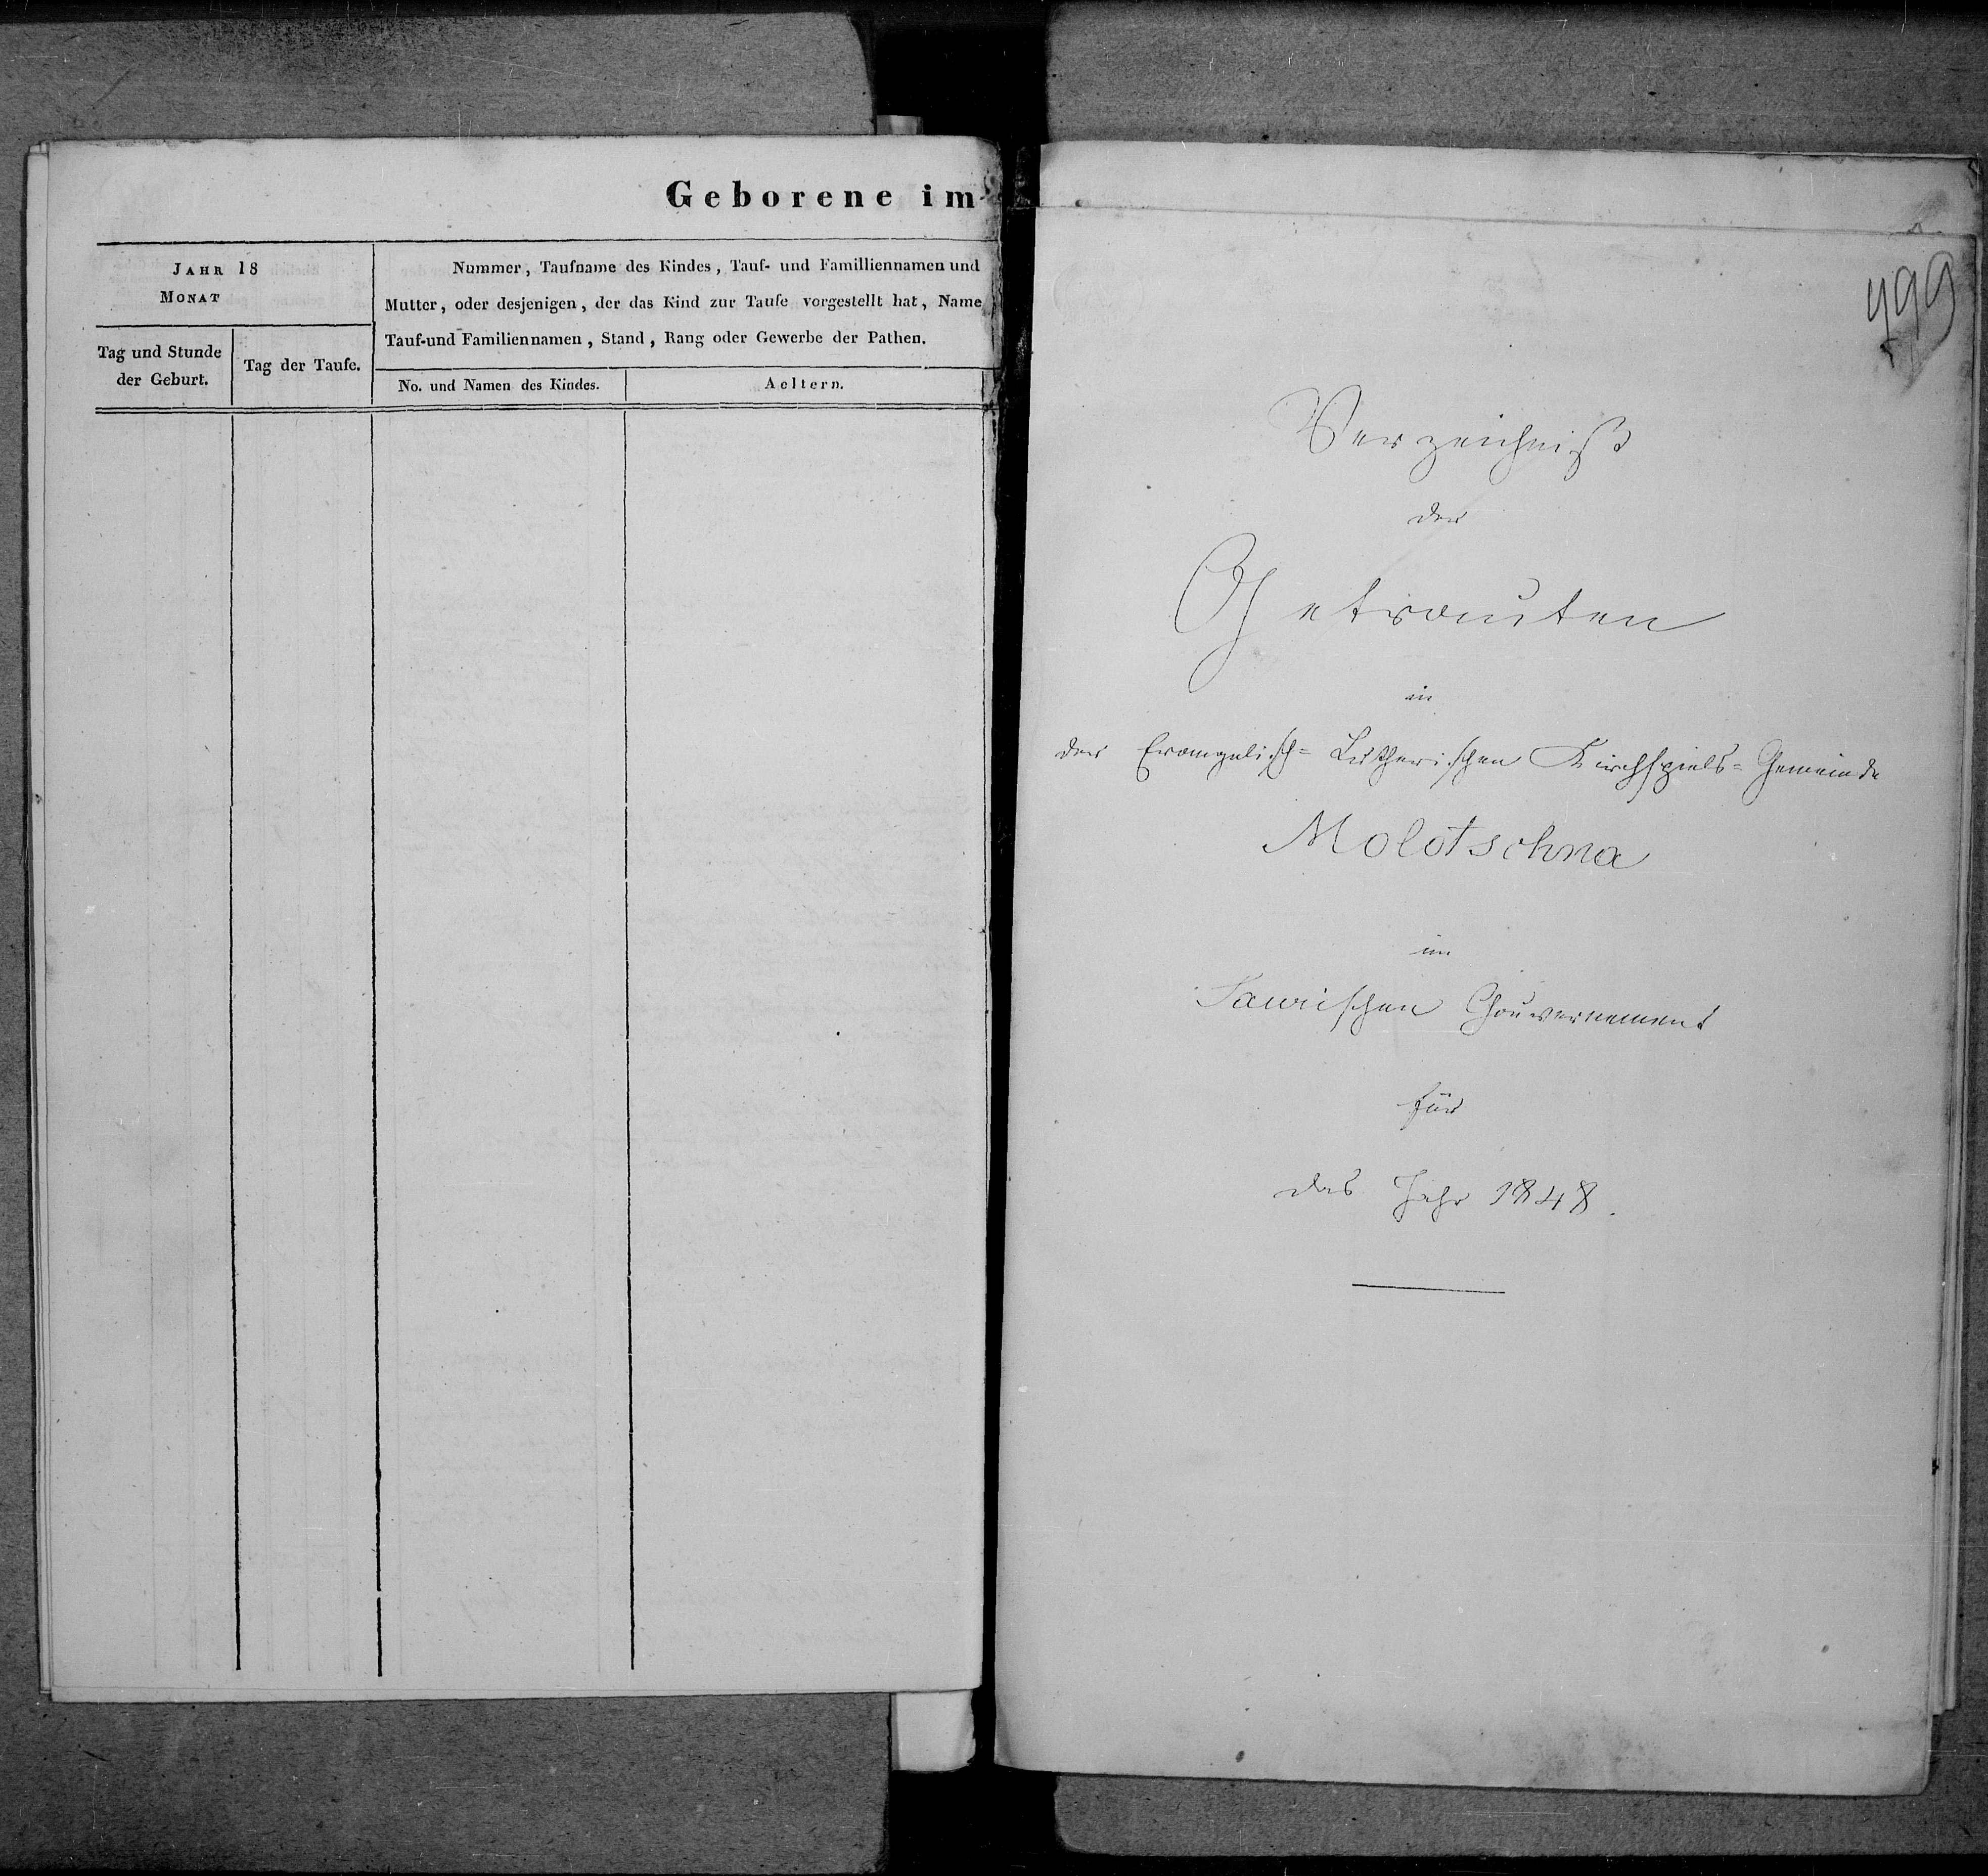 Geborene im
JAHR 18
MONAT
Nummer, Taufname des Kindes, Tauf- und Familliennamen und
Mutter, oder desjenigen, der das Kind zur Taufe vorgestellt hat, Name
Tauf-und Familiennamen, Stand, Rang oder Gewerbe der Pathen.
Tag und Stunde
der Geburt.
Tag der Taufe.
No. und Namen des Kindes.
Aeltern.
499
Verzeichniß
der
Getrauten
in
der Evangelisch= Lutherischen Kirchspiels= Gemeinde
Molotschna
im
Taurischen Gouvernement
für
das Jahr 1848.